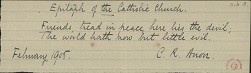 Epitaph of the Catholic Church.
Friends, tread in peace here lies the devil,
The world hath now but little evil.
February 1905.
C. R. Anon